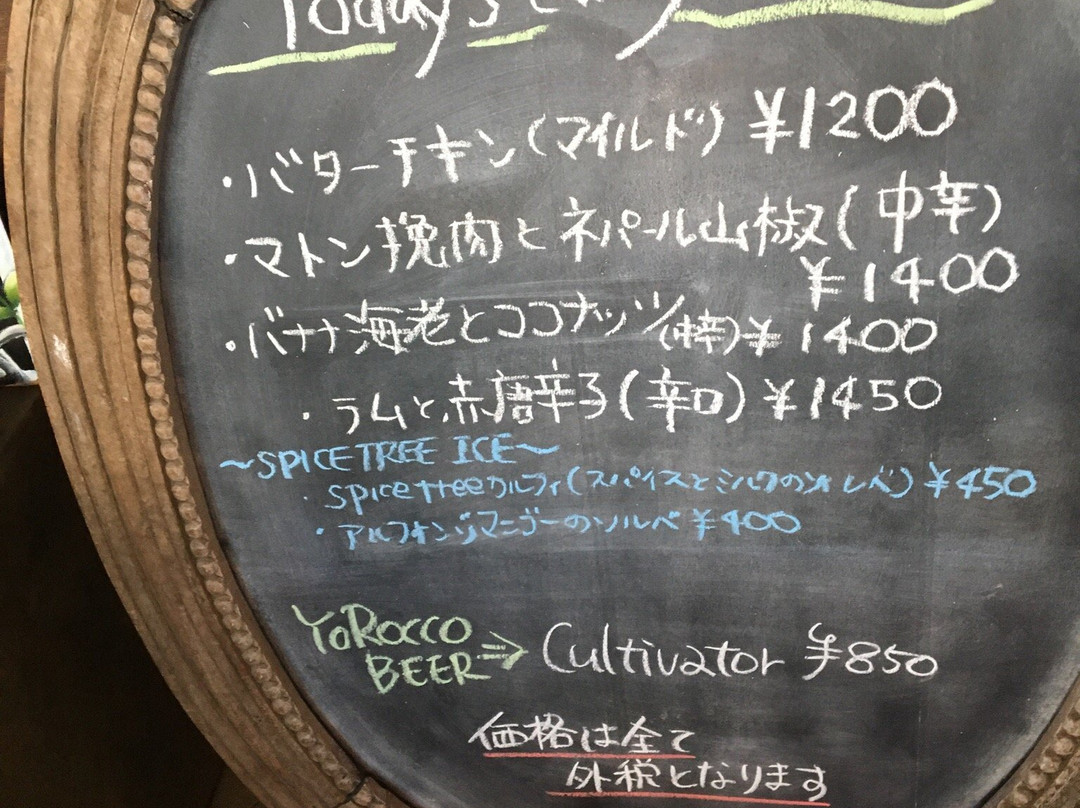 Today's
・バターチキン(マイルド) ¥1200
・マトン挽肉とネパール山椒(中辛)
¥1400
・バナナ海老とココナッツ(中辛)¥1400
・ラムと赤唐辛子(辛口)¥1450
～SPICE TREE ICE～
・spice treeクルフィ(スパイスとミルクのソルベ)¥450
・アルフォンソマンゴーのソルベ¥400
YOROCCO
BEER⇒Cultivator ¥850
価格は全て
外税となります